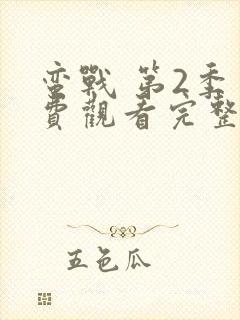 蛮戰 第2季
費觀看完整
五色瓜